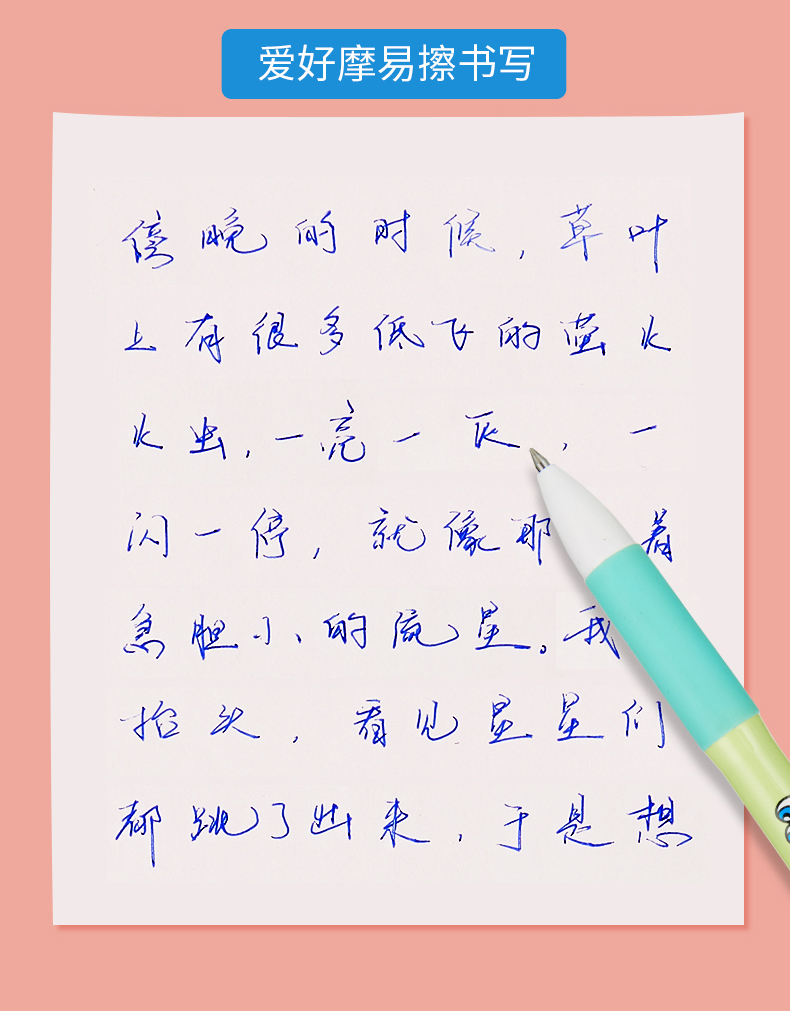 爱好摩易擦书写
傍晚的时候，草叶
上有很多低飞的萤火
火虫，一亮一灰，一
闪一停，就像那着
急胆小、的流星。我
抬头，看见星星们
都跳了出来，于是想